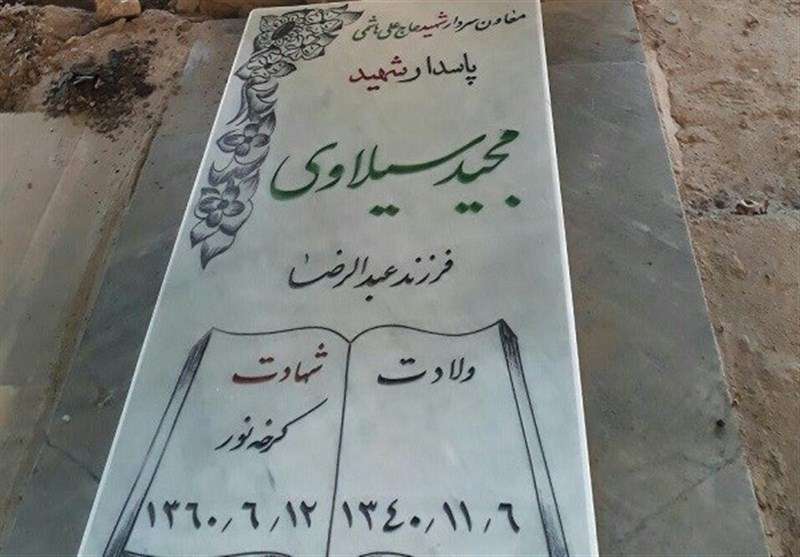 معاون سردار شهید حاج علی هاشمی
پاسدار شهید
مجید سیلاوی
فرزند عبدالرضا
ولادت
۱۳۴۰/۱۱/۶
شهادت
کرخه نور
۱۳۶۰/۶/۱۲